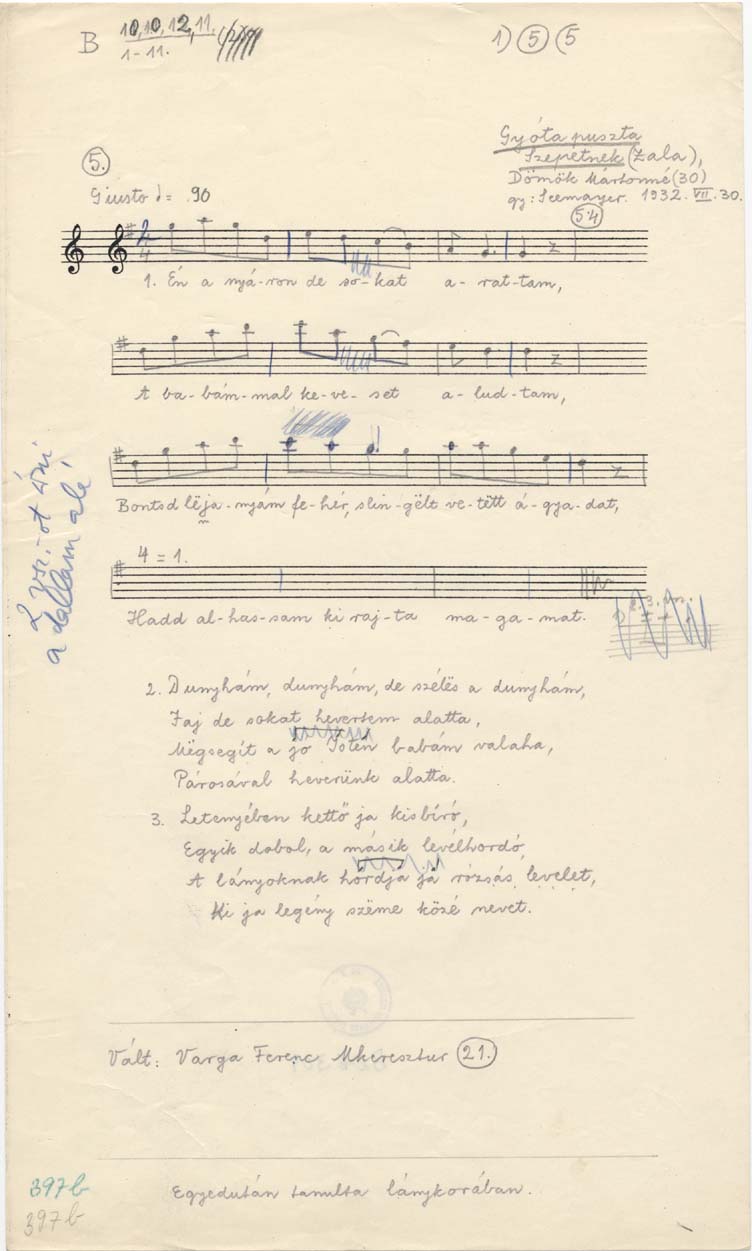 B 10, 10, 12, 11.
1-11.
1) 5 (5
5.
Gyóta puszta
Szepetnek (Zala),
Dömök Mártonné (30)
gy: Seemayer. 1932. VII. 30.
54
Giusto ♩ = 90
1. Én a nyá-ron de so-kat a-rat-tam,
A ba-bám-mal ke-ve-set a-lud-tam,
Bontsd lë ja-nyám fe-hér, slin-gëlt ve-tëtt á-gya-dat,
4 = 1.
Hadd al-has-sam ki raj-ta ma-ga-mat.
2. 3. vsz.
2 vsz.-ot írni
a dallam alé
2. Dunyhám, dunyhám, de szélës a dunyhám,
Faj de sokat hevertem alatta,
Mëgsegít a jó Isten babám valaha,
Párosával heverünk alatta.
3. Letenyében kettő ja kisbíró,
Egyik dobol, a másik levélhordó,
A lányoknak hordja ja rózsás levelet,
Ki ja legény szëme közé nevet.
Vált: Varga Ferenc Mkeresztur 21.
397b
397b
Egyedután tanulta lánykorában.